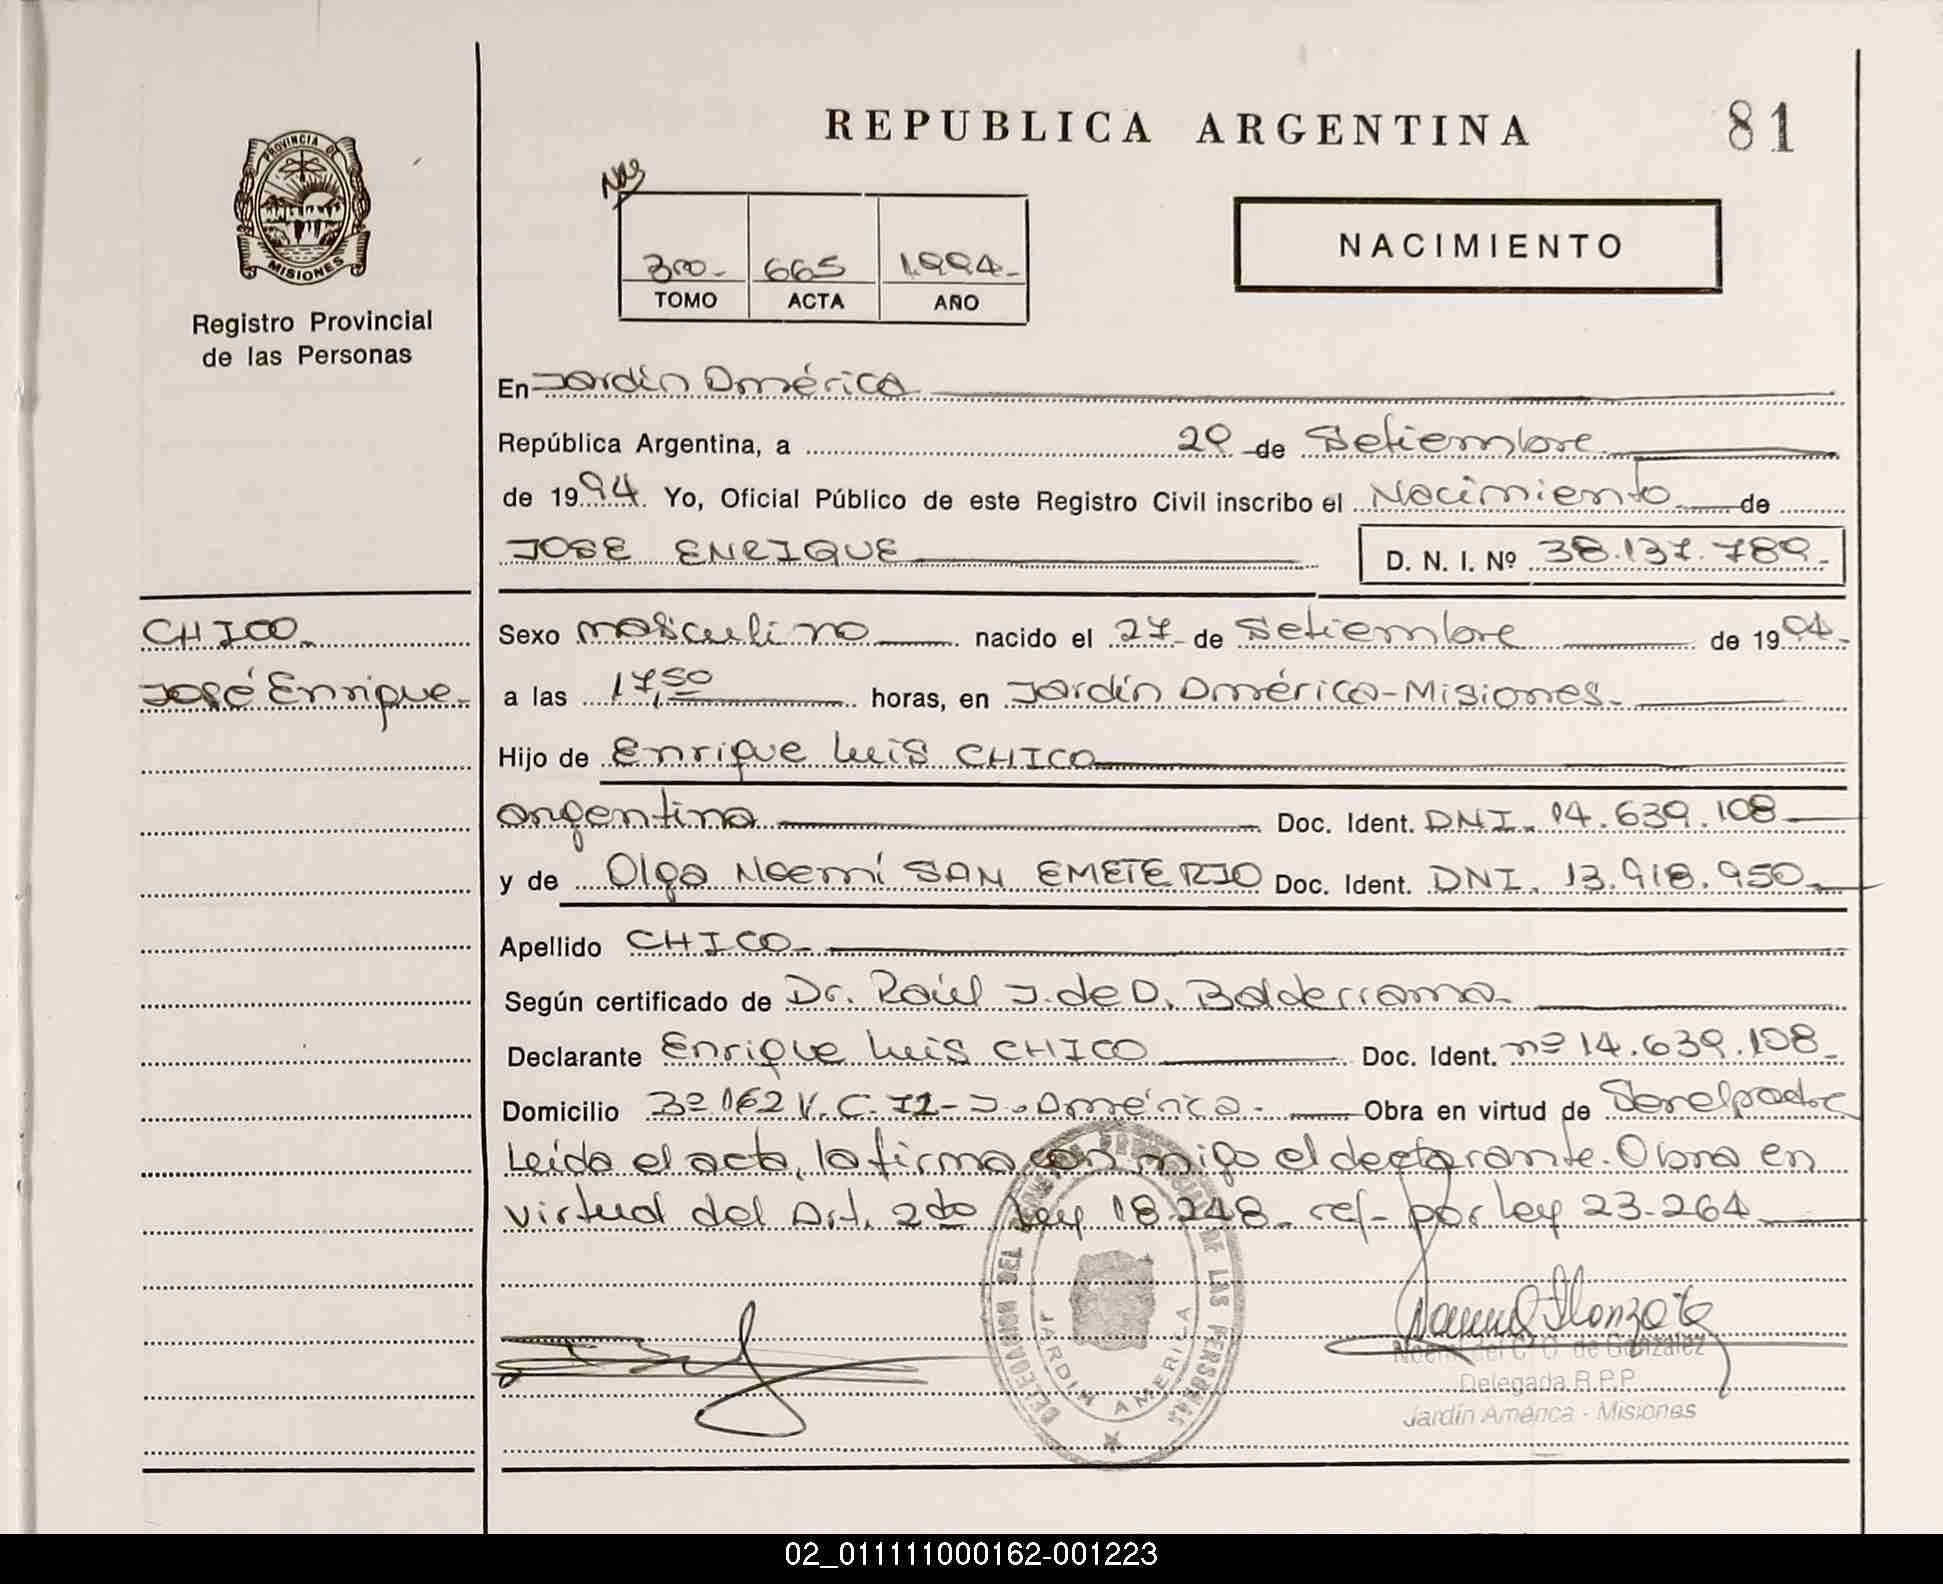 REPUBLICA ARGENTINA
81
PROVINCIA DE
MISIONES
Registro Provincial
de las Personas
Nas
3ro- 665 1994-
TOMO ACTA AÑO
NACIMIENTO
En Jardín América
República Argentina, a 29 de Setiembre
de 1994. Yo, Oficial Público de este Registro Civil inscribo el Nacimiento de
JOSE ENRIQUE D. N. I. Nº 38.137.789-
CHICO-
José Enrique-
Sexo masculino nacido el 27 de Setiembre de 1994-
a las 17,50 horas, en Jardín América-Misiones-
Hijo de Enrique Luis CHICO
argentina Doc. Ident. DNI. 14.639.108
y de Olga Noemí SAN EMETERIO Doc. Ident. DNI. 13.918.950
Apellido CHICO-
Según certificado de Dr. Raúl J. de D. Balderrama-
Declarante Enrique Luis CHICO Doc. Ident. nº 14.639.108-
Domicilio 3º 162 V. C. J. América- Obra en virtud de Ser el padre
Leída el acta, la firma con migo el declarante. Obra en
virtud del Art. 2do Ley 18.248- ref- por ley 23-264
DELEGACION DEL REGISTRO PROVINCIAL DE LAS PERSONAS
JARDIN AMERICA
Noemí del C. O. de González
Delegada R.P.P.
Jardín América - Misiones
02_011111000162-001223